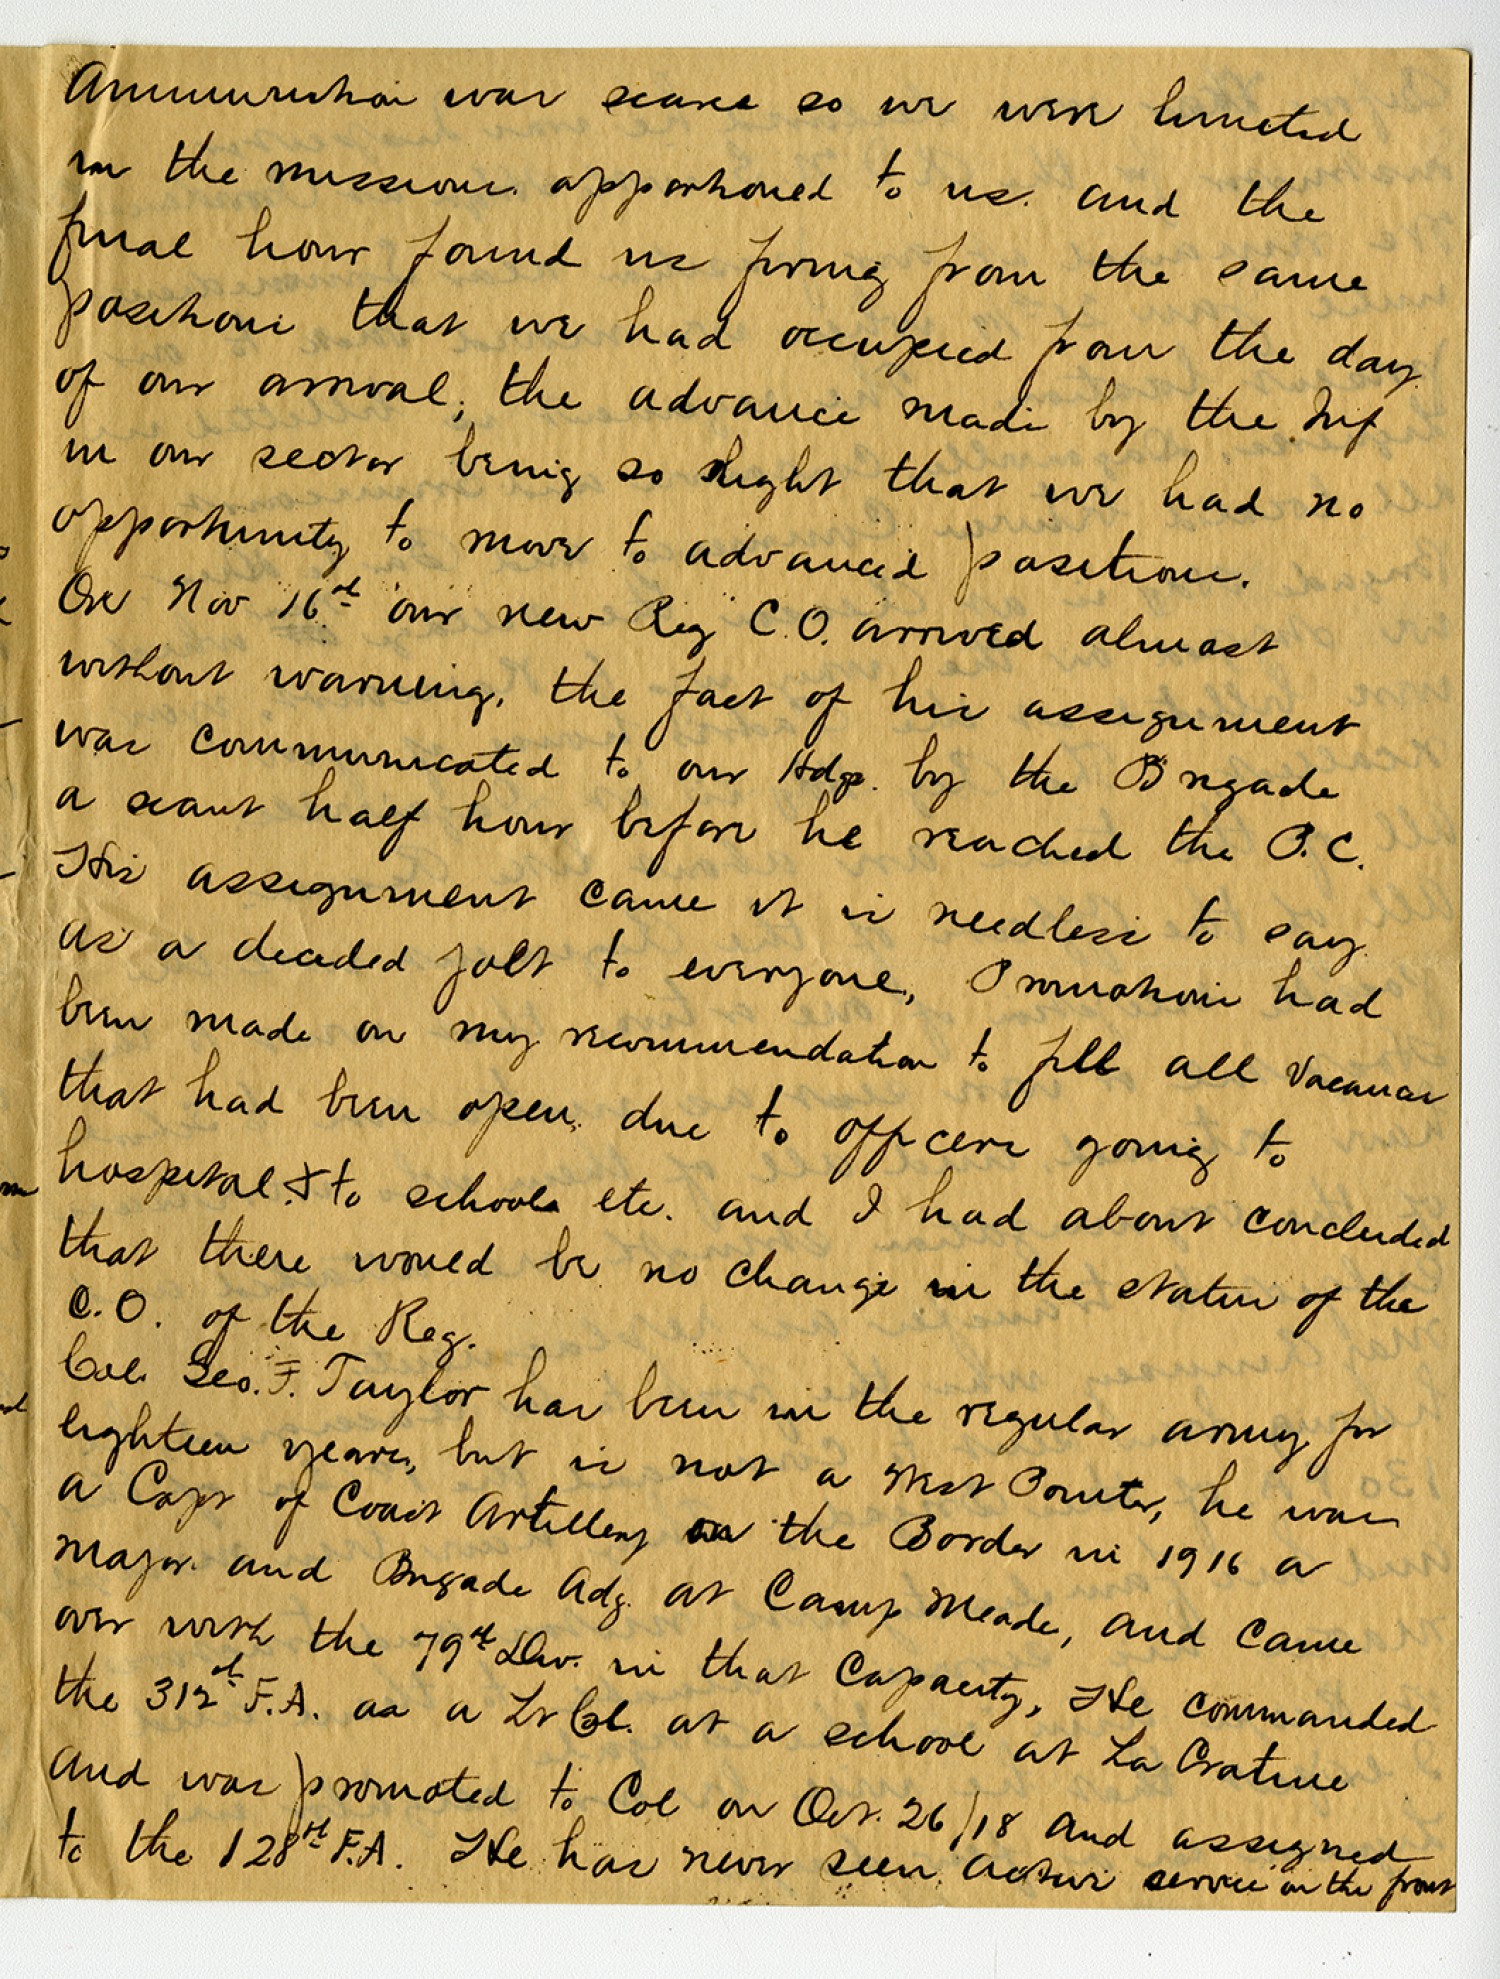 Ammunition was scarce so we were limited
in the missions apportioned to us. and the
final hour found us firing from the same
positions that we had occupied from the day
of our arrival, the advance made by the Inf
in our sector being so slight that we had no
opportunity to move to advanced positions.
On Nov 16th our new Reg C.O. arrived almost
without warning, the fact of his assignment
was communicated to our Hdqs. by the Brigade
a scant half hour before he reached the P.C.
His assignment came it is needless to say
as a decided jolt to everyone, Promotions had
been made on my recommendation to fill all vacancies
that had been open, due to officers going to
hospital & to schools etc. and I had about concluded
that there would be no change in the status of the
C.O. of the Reg.
Col. Geo. F. Taylor has been in the regular army for
eighteen years, but is not a West Pointer, he was
a Capt of Coast Artillery on the Border in 1916 a
Major and Brigade Adj. at Camp Meade, and came
over with the 79th Div. in that capacity, He commanded
the 312th F.A. as a Lt Col. at a school at La Cratine
and was promoted to Col on Oct. 26/18 and assigned
to the 128th F.A. He has never seen active service on the front